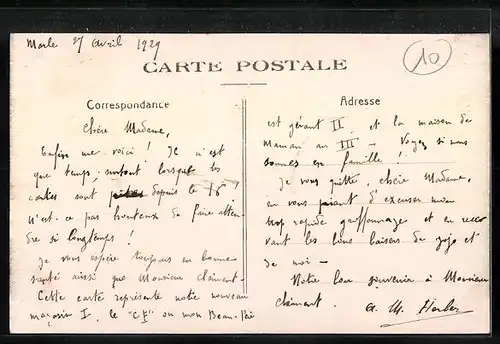 Marle 27 Avril 1929
10
CARTE POSTALE
Correspondance
Chère Madame,
Enfin me voici ! Ce n'est
que temps, surtout lorsque les
cartes sont depuis le 18 !
N'est-ce pas honteux de faire atten-
dre si longtemps !
Je vous espère toujours en bonne
santé ainsi que Monsieur Clément.
Cette carte représente notre nouveau
magasin I, le "C.F." ou mon Beau-Père
Adresse
est gérant II et la maison de
Maman au III - Voyez si nous
sommes en famille !
Je vous quitte, chère Madame,
en vous priant d'excuser mon
trop rapide griffonnage et en rece-
vant les bons baisers de Jojo et
de moi -
Notre bon souvenir à Monsieur
Clément.
A. M.